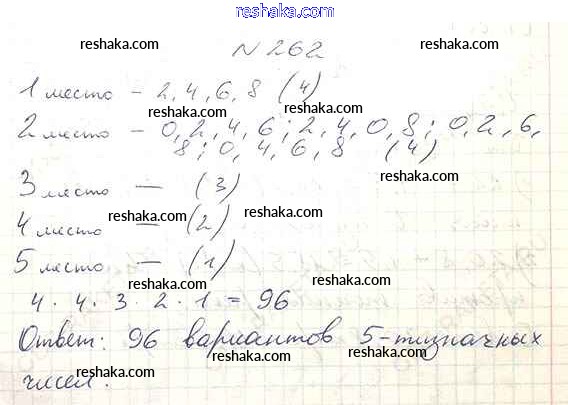 www.reshaka.com
reshaka.com reshaka.com
N 262
1 место - 2, 4, 6, 8 (4)
reshaka.com reshaka.com
2 место - 0, 2, 4, 6; 2, 4, 0, 8; 0, 2, 6,
8; 0, 4, 6, 8 (4)
reshaka.com reshaka.com
3 место - (3)
4 место - (2)
reshaka.com reshaka.com
5 место - (1)
reshaka.com reshaka.com
4 · 4 · 3 · 2 · 1 = 96
Ответ: 96 вариантов 5-тизначных
reshaka.com reshaka.com
чисел.
reshaka.com reshaka.com